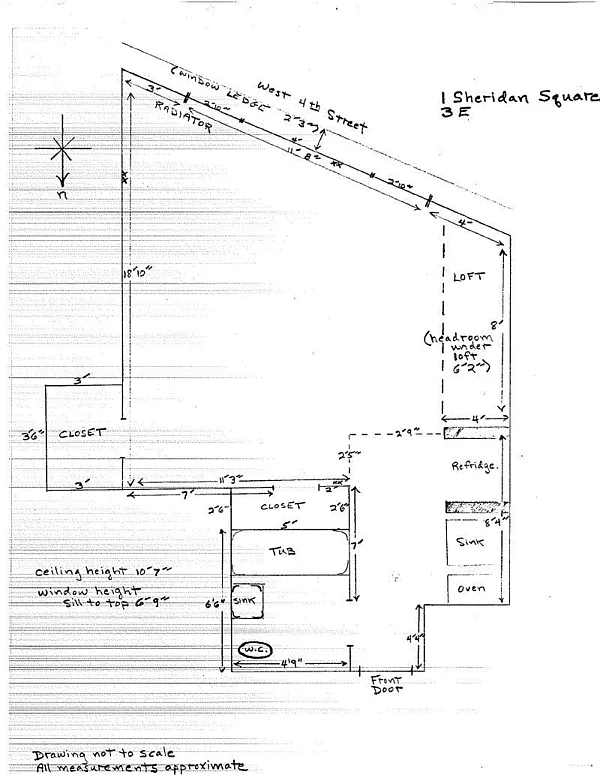 West 4th Street
(WINDOW LEDGE 2'3")
1 Sheridan Square
3E
3'
RADIATOR
2'10"
4'
11'8" xx
2'10"
4'
n
xx
18'10"
LOFT
8'
(headroom
under
loft
6'2")
4'
3'
3'6"
CLOSET
3'
2'9"
2'5"
Refridge.
11'3"
7'
xx
2'
2'6"
CLOSET
2'6"
5'
8'4"
TUB
7'
Sink
ceiling height 10'7"
window height
Sill to top 6'9"
6'6"
SINK
Oven
4'4"
W.C.
4'9"
Front
Door
Drawing not to scale
All measurements approximate